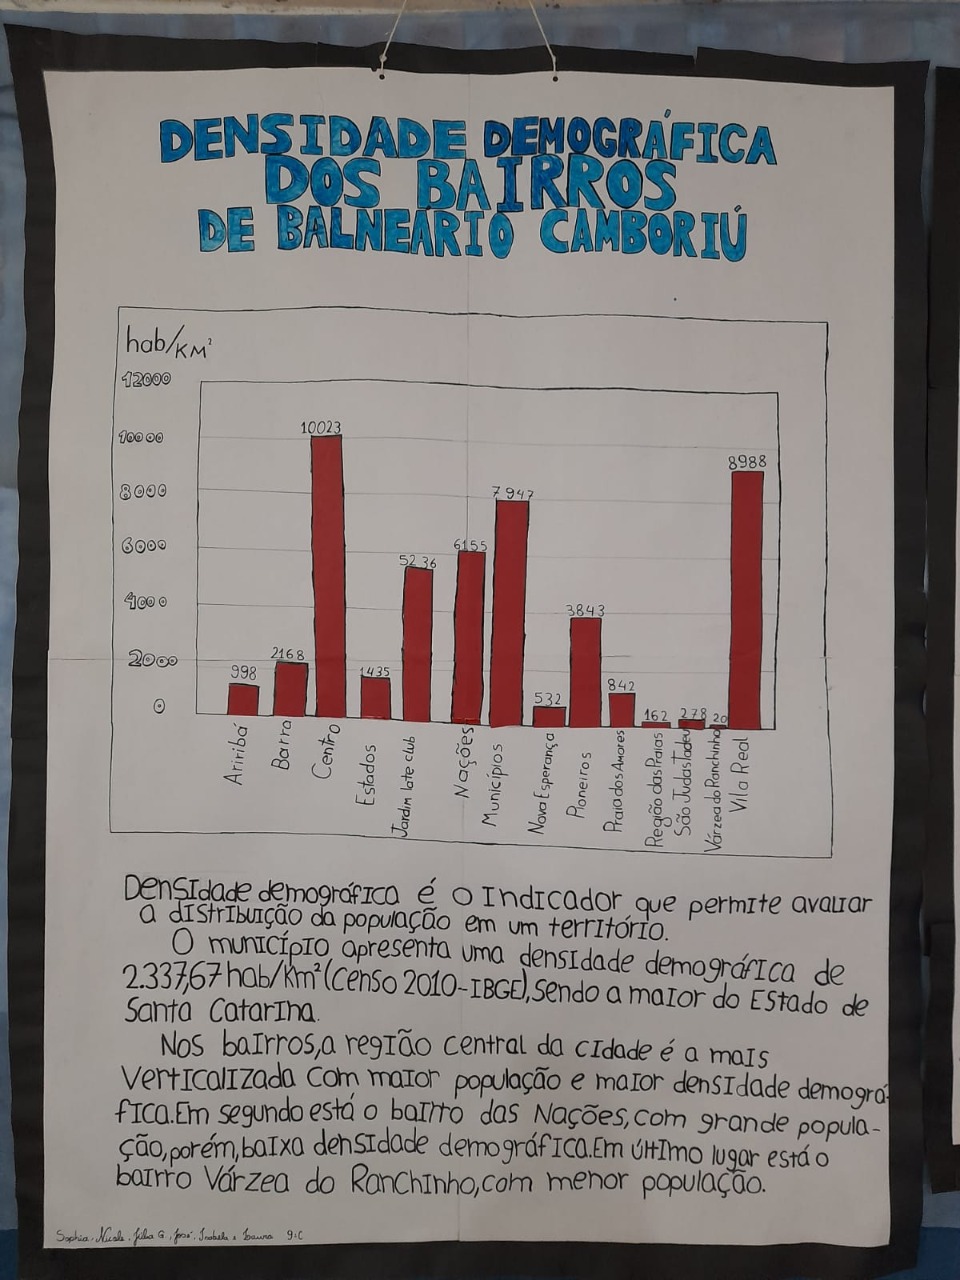 DENSIDADE DEMOGRÁFICA
DOS BAIRROS
DE BALNEÁRIO CAMBORIÚ
hab/KM²
12000
10000
8000
6000
4000
2000
0
998
2168
10023
1435
5236
6155
7947
532
3843
842
162
278
20
8988
Aririba
Barra
Centro
Estados
Jardim Iate club
Nações
Municípios
Nova Esperança
Pioneiros
Praia dos Amores
Região das Praias
São Judas Tadeu
Várzea do Ranchinho
Vila Real
Densidade demográfica é o indicador que permite avaliar
a distribuição da população em um território.
O município apresenta uma densidade demográfica de
2.337,67 hab/Km² (Censo 2010-IBGE), sendo a maior do Estado de
Santa Catarina.
Nos bairros, a região central da cidade é a mais
verticalizada com maior população e maior densidade demográ-
fica. Em segundo está o bairro das Nações, com grande popula-
ção, porém, baixa densidade demográfica. Em último lugar está o
bairro Várzea do Ranchinho, com menor população.
Sophia, Nicole, Júlia G, José, Isabela e Laura 9:C